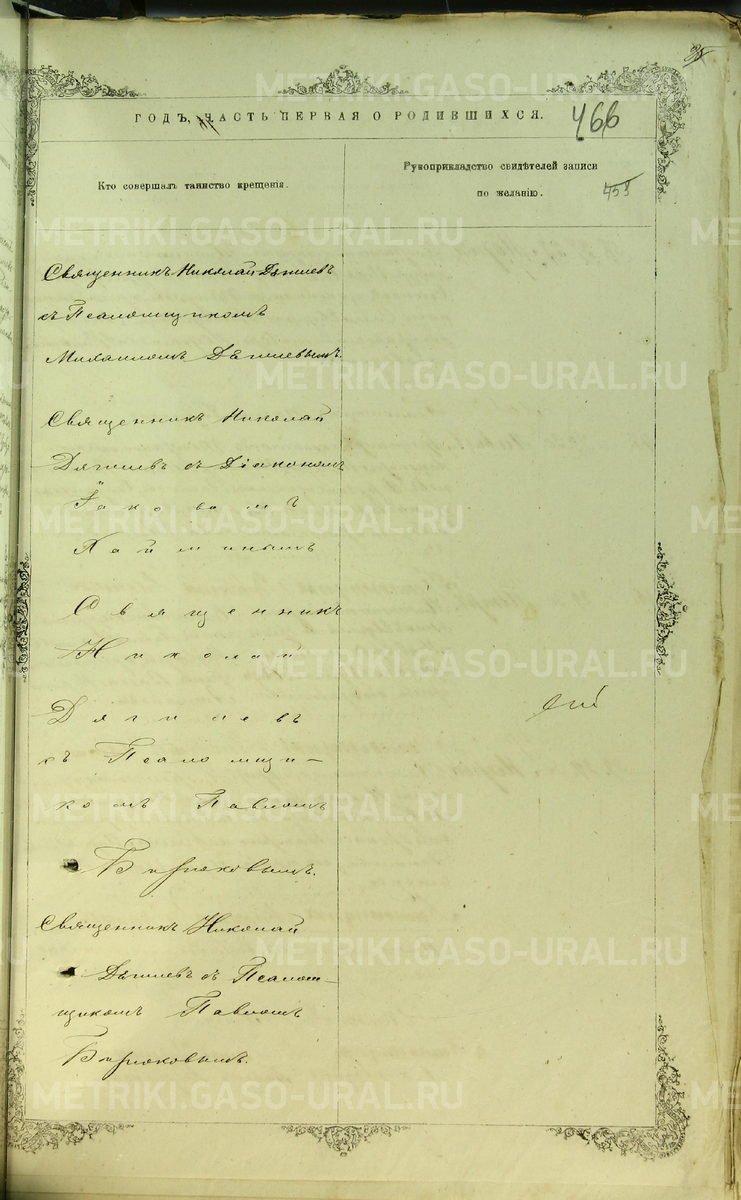 ГОДЪ, ЧАСТЬ ПЕРВАЯ О РОДИВШИХСЯ.
466
Кто совершалъ таинство крещенія.
Рукоприкладство свидѣтелей записи
по желанію.
458
Священникъ Николай Дягилевъ
съ Псаломщикомъ
Михаиломъ Дягилевымъ.
Священникъ Николай
Дягилевъ съ Діакономъ
Іаковомъ
Священникъ
Николай
Дягилевъ
съ Псаломщи-
комъ Павломъ
Бирюковымъ.
Священникъ Николай
Дягилевъ съ Псалом-
щикомъ Павломъ
Бирюковымъ.
METRIKI.GASO-URAL.RU